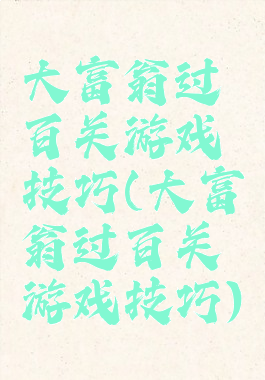 大富翁过
百关游戏
技巧(大富
翁过百关
游戏技巧)